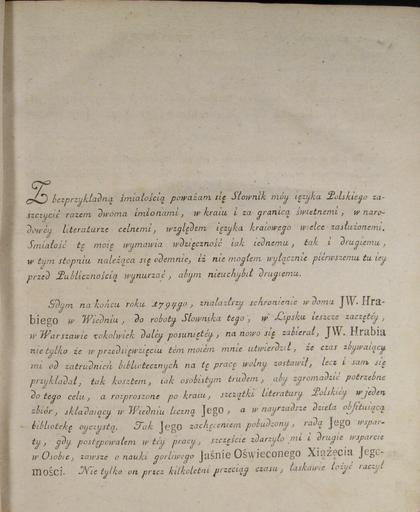 Z bezprzykładną śmiałością poważam się Słownik móy ięzyka Polskiego za-
szczycić razem dwoma imionami, w kraiu i za granicą świetnemi, w naro-
dowéy literaturze celnemi, względem ięzyka kraiowego wielce zasłużonemi.
Śmiałość tę moię wymawia wdzięczność iak iednemu, tak i drugiemu,
w tym stopniu należąca się odemnie, iż nie mogłem wyłącznie piérwszemu tu iey
przed Publicznością wynurzać, abym nieuchybił drugiemu.
Gdym na końcu roku 1794go, znalazłszy schronienie w domu JW. Hra-
biego w Wiedniu, do roboty Słownika tego, w Lipsku ieszcze zaczętéy,
w Warszawie cokolwiek daléy posuniętéy, na nowo się zabierał, JW. Hrabia
nie tylko że w przedsięwzięciu tém moiém mnie utwierdził, że czas zbywaiący
mi od zatrudnień bibliotecznych na tę pracę wolny zostawił, lecz i sam się
przykładał, tak kosztem, iak osobistym trudem, aby zgromadzić potrzebne
do tego celu, a rozproszone po kraiu, szczątki literatury Polskiéy w jeden
zbiór, składaiący w Wiedniu liczną Jego, a w nayrzadsze dzieła obfituiącą
bibliotekę oyczystą. Tak Jego zachęceniem pobudzony, radą Jego wspar-
ty, gdy postępowałem w téy pracy, szczęście zdarzyło mi i drugie wsparcie
w Osobie, zawsze o nauki gorliwego Jaśnie Oświeconego Xiążęcia Jego-
mości. Nie tylko on przez kilkoletni przeciąg czasu, łaskawie łożyć raczył